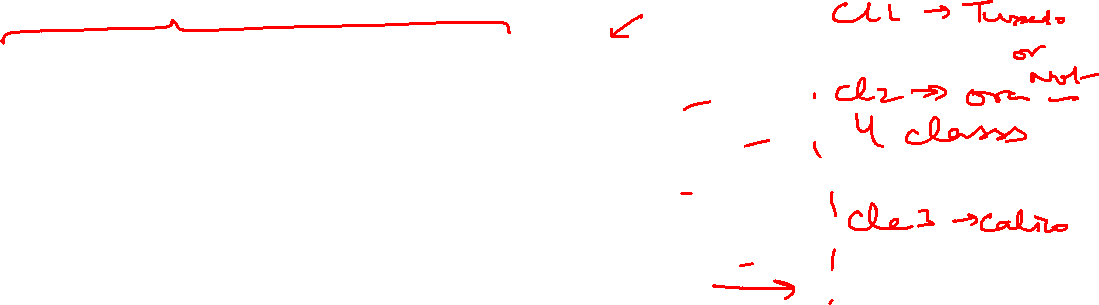 Cl1 → Tuxedo
or
Not
Cl2 → ora
4 classs
Cle3 → Calico